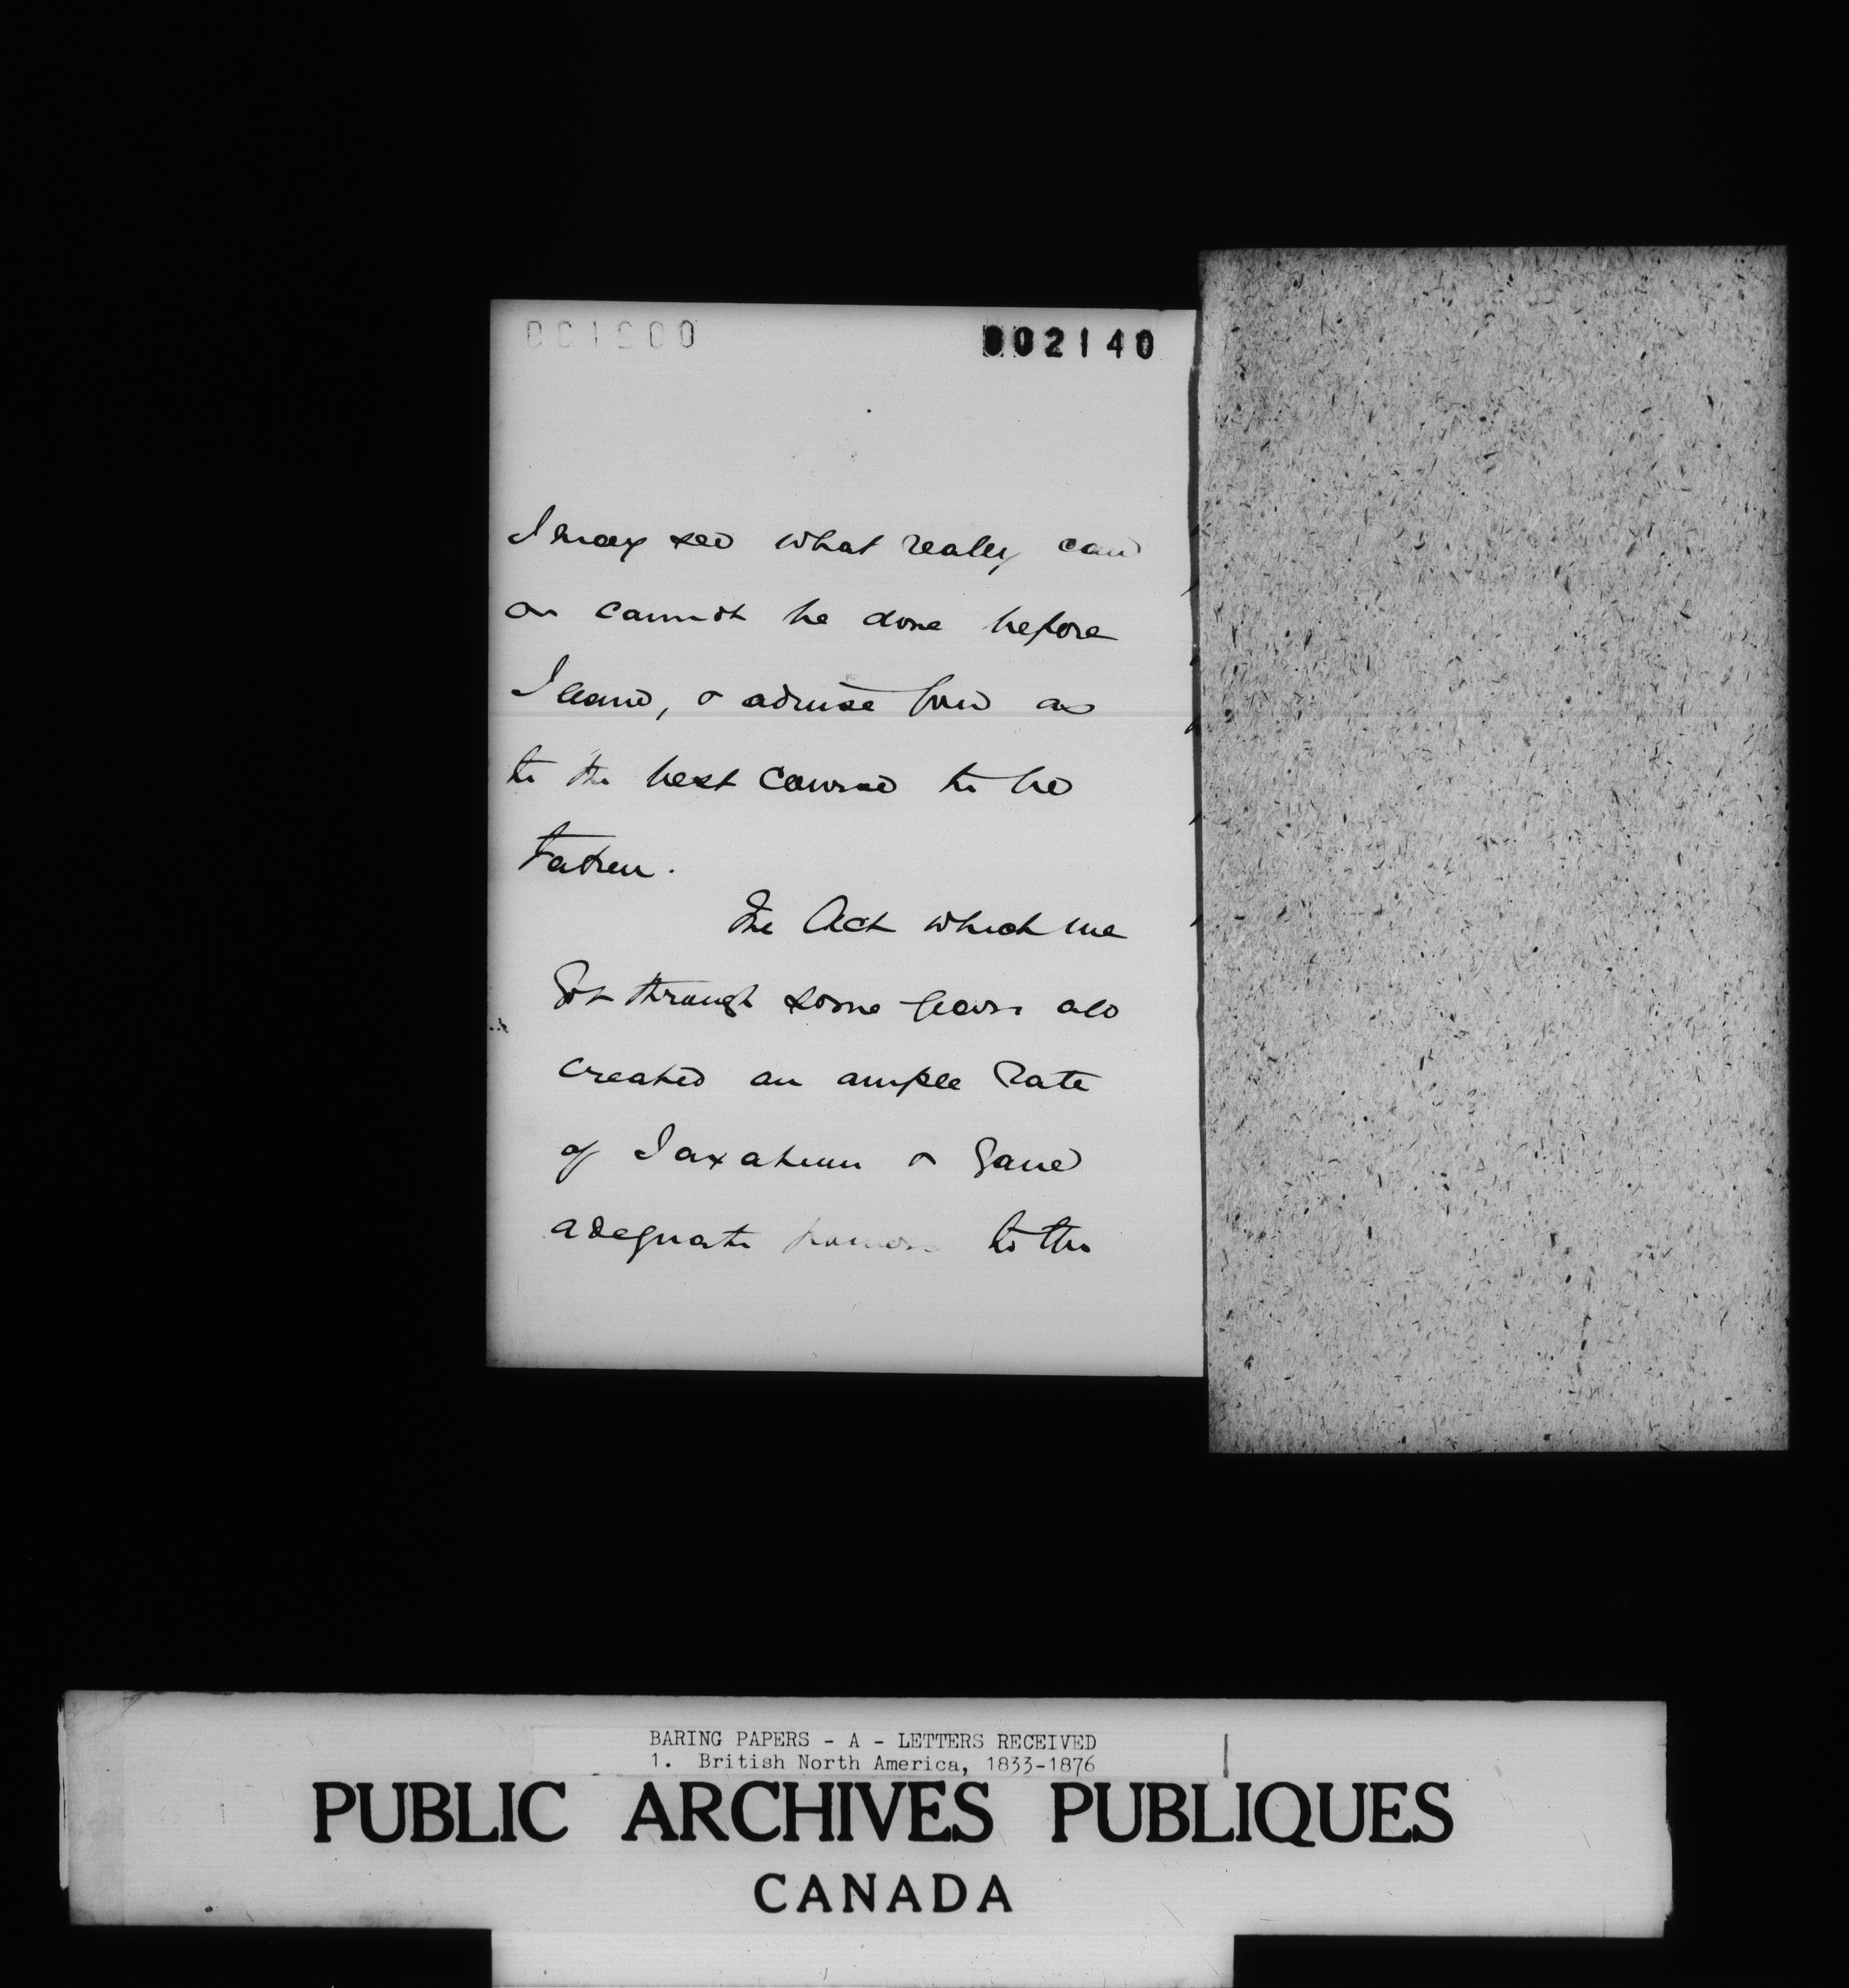 002140
I may see what really can
or cannot be done before
I leave, & advise you as
to the best course to be
taken.
The Act which we
Got through some years ago
created an ample Rate
of Taxation & Gave
adequate powers to the
BARING PAPERS - A - LETTERS RECEIVED
1. British North America, 1833-1876
PUBLIC ARCHIVES PUBLIQUES
CANADA